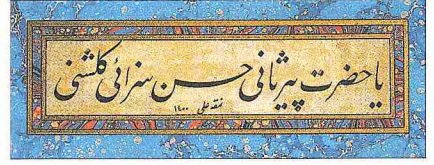 یا حضرت پیر ثانی حسن سزائی گلشنی
نمقه علی ١٤٠٠